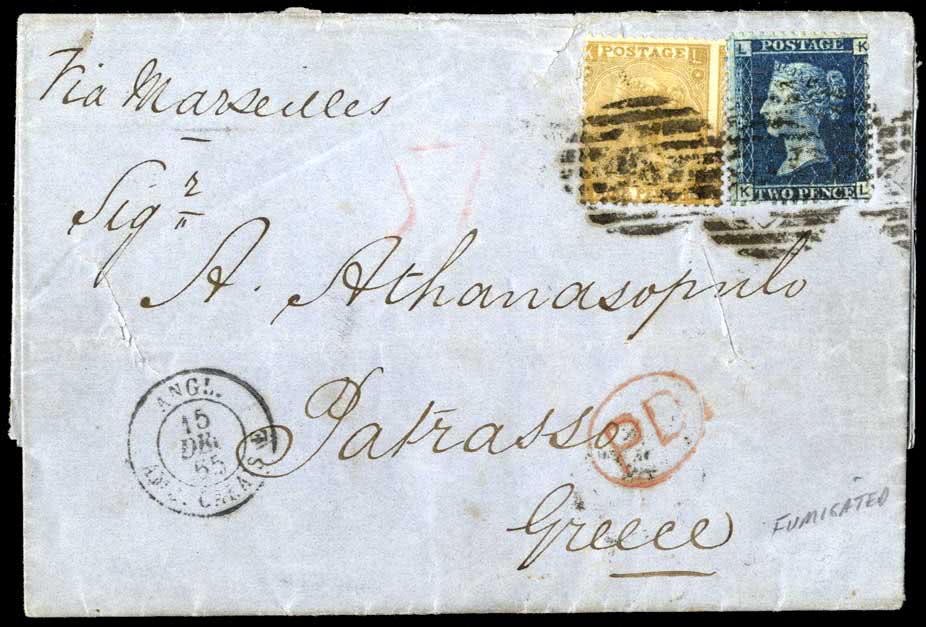 Via Marseilles
K POSTAGE L
L POSTAGE K
K TWO PENCE L
Sigr
A. Athanasopulo
Patrasso
Greece
ANGL.
15
DEC.
65
AMB. CALAIS
PD
FUMIGATED